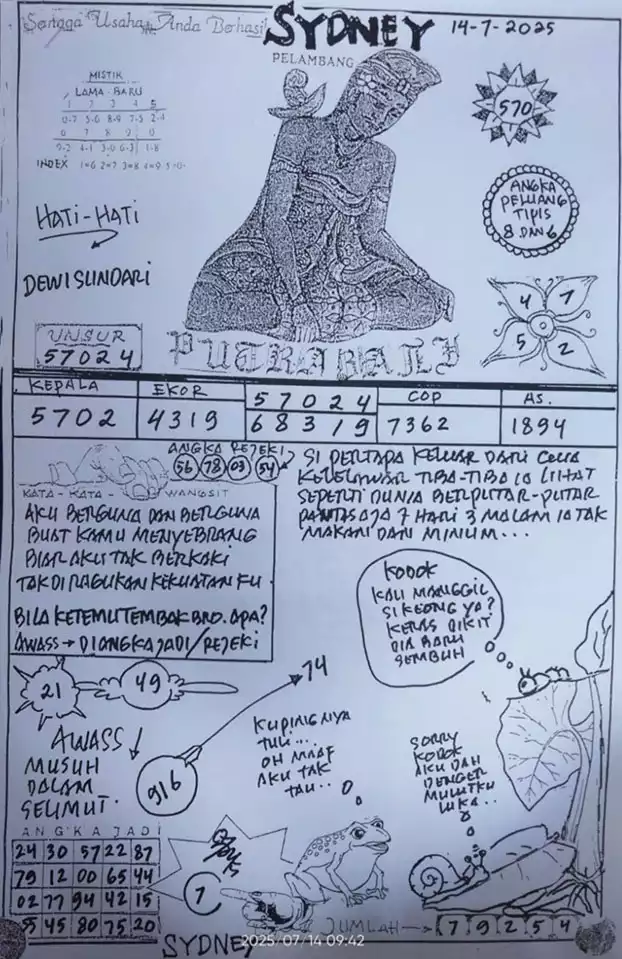 Semoga Usaha Anda Berhasil
SYDNEY
14-7-2025
PELAMBANG
MISTIK
LAMA - BARU
1 2 3 4 5
0-7 5-6 8-9 7-5 2-4
6 7 8 9 0
9-2 4-1 3-0 6-3 1-8
INDEX 1=6 2=7 3=8 4=9 5=0
570
ANGKA
PELUANG
TIPIS
8 DAN 6
HATI-HATI
DEWI SUNDARI
UNSUR
57024
4 7
5 2
PUTRA BALI
KEPALA
5702
EKOR
4319
57024
68319
COP
7362
AS.
1894
ANGKA REJEKI
56 78 03 54
KATA - KATA WANGSIT
AKU BERGUNA DAN BERGUNA
BUAT KAMU MENYEBRANG
BIAR AKU TAK BERKAKI
TAK DI RAGUKAN KEKUATAN KU.
BILA KETEMU TEMBAK BRO. APA?
AWASS → DI ANGKA JADI/REJEKI
SI PERTAPA KELUAR DARI
TIBA-TIBA IA LIHAT
SEPERTI DUNIA BERPUTAR-PUTAR
PANTAS AJA 7 HARI 3 MALAM IA TAK
MAKAN DAN MINUM...
KODOK
KAU MANGGIL
SI KEONG YA?
KERAS DIKIT
DIA BARU
SEMBUH
21
49
74
916
AWASS
MUSUH
DALAM
SELIMUT.
KUPINGNYA
TULI...
OH MAAF
AKU TAK
TAU..
SORRY
KODOK
AKU DAH
DENGER
MULUTKU
LUKA..
ANGKA JADI
24 30 57 22 87
79 12 00 65 44
02 77 94 42 15
55 45 80 75 20
7
JUMLAH → 7 9 2 5 4
SYDNEY
2025/07/14 09:42